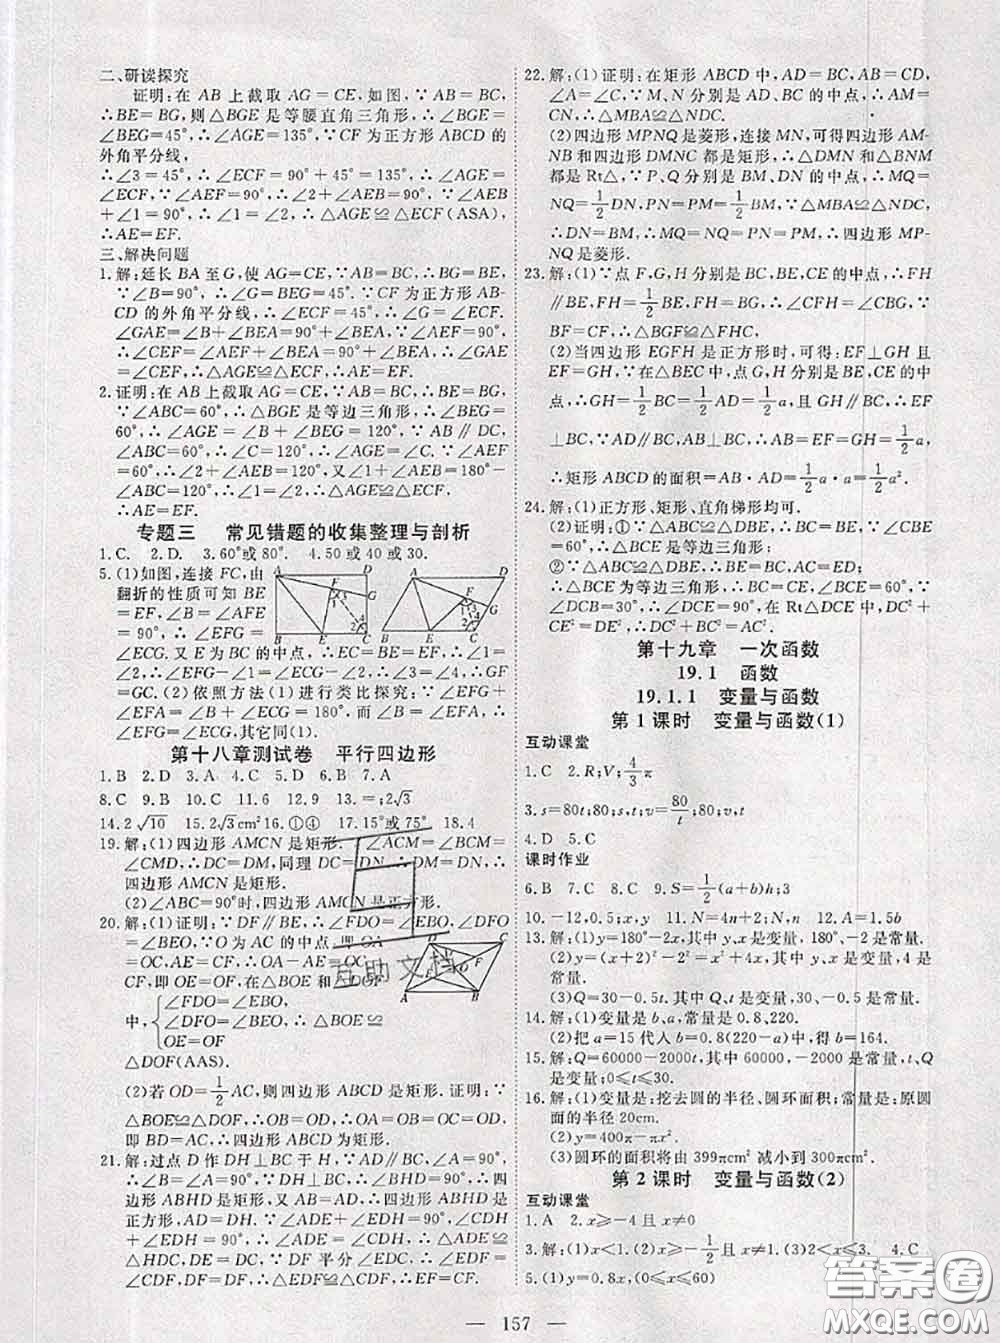 二、研读探究
证明:在 AB 上截取 AG=CE,如图,∵AB=BC,
∴BG=BE,则△BGE 是等腰直角三角形,∴∠BGE=
∠BEG=45°,∴∠AGE=135°,∵CF 为正方形 ABCD 的
外角平分线,
∴∠3=45°,∴∠ECF=90°+45°=135°,∴∠AGE=
∠ECF,∵∠AEF=90°,∴∠2+∠AEB=90°,∵∠AEB
+∠1=90°,∴∠1=∠2,∴△AGE≌△ECF(ASA),
∴AE=EF.
三、解决问题
1.解:延长 BA 至 G,使 AG=CE,∵AB=BC,∴BG=BE,
∵∠B=90°,∴∠G=∠BEG=45°.∵CF 为正方形 AB-
CD 的外角平分线,∴∠ECF=45°.∴∠G=∠ECF.
∠GAE=∠B+∠AEB=90°+∠AEB,∵∠AEF=90°,
∴∠CEF=∠AEF+∠AEB=90°+∠AEB,∴∠GAE
=∠CEF,∴△AGE≌△ECF,∴AE=EF.
2.证明:在 AB 上截取 AG=CE,∵AB=BC,∴BE=BG,
∵∠ABC=60°,∴△BGE 是等边三角形,∴∠BGE=
60°,∴∠AGE=∠B+∠BGE=120°,∵AB∥DC,
∠ABC=60°,∴∠C=120°,∴∠AGE=∠C.∵∠AEF=
60°,∴∠1+∠AEB=120°,又∠1+∠2+∠AEB=180°-
∠ABC=120°,∴∠1=∠2,∴△AGE≌△ECF,
∴AE=EF.
专题三 常见错题的收集整理与剖析
1.C. 2.D. 3.60°或 80°. 4.50 或 40 或 30.
5.(1)如图,连接 FC,由
翻折的性质可知 BE
=EF,∴∠B=∠AFE
=90°,∴∠EFG=
∠ECG.又 E 为 BC 的中点,∴BE=EC,∴EF=EC,
∴∠EFC=∠ECF,∴∠3=∠4,∴GF=
GC.(2)依照方法(1)进行类比探究:∵∠B=∠AFE,
∠B+∠ECG=180°,∠AFE+∠EFG=180°,而∠EFG=
∠ECG,其它同(1).
第十八章测试卷 平行四边形
1.B 2.D 3.A 4.C 5.D 6.B 7.A
8.C 9.B 10.C 11.6 12.9 13.=;2√3
14.2√10 15.2√3cm² 16.①④ 17.15°或 75° 18.4
19.解:(1)四边形 AMCN 是矩形.∵∠ACM=∠BCM=
∠CMD,∴DC=DM,同理 DC=DN,∴DM=DN,∴四
边形 AMCN 是矩形.
(2)∠ACB=90°时,四边形 AMCN 是正方形.
20.解:(1)证明:∵DF∥BE,∴∠FDO=∠EBO,∠DFO
=∠BEO,∵O 为 AC 的中点,即 OA
=OC,AE=CF,∴OA-AE=OC-
CF,即 OE=OF,在△BOE 和△DOF
中,{∠FDO=∠EBO,
∠DFO=∠BEO,∴△BOE≌
OE=OF
△DOF(AAS).
(2)若 OD=1/2AC,则四边形 ABCD 是矩形.证明:∵
△BOE≌△DOF,∴OB=OD,∴OA=OB=OC=OD,
即 BD=AC,∴四边形 ABCD 为矩形.
21.解:过点 D 作 DH⊥BC 于 H,∵∠A=∠B=90°,∴四
边形 ABHD 是矩形,又 AD=AB,∴四边形 ABHD 是
正方形,AD=DH.∵∠EDC=90°,∴∠EDH+∠CDH
=90°,∠ADE+∠EDH=90°,∴∠ADE=∠CDH,
∴△DAE≌△DHC,∴DE=DC,∵DF 平分∠EDC,
∴∠CDF=∠EDF,∴△EDF≌△CDF,∴EF=CF.
22.解:(1)证明:在矩形 ABCD 中,AD=BC,AB=CD,
∠A=∠C,∵M、N 分别是 AD、BC 的中点,∴AM=
CN,∴△MBA≌△NDC.
(2)四边形 MPNQ 是菱形,连接 MN,可得四边形 AM-
NB 和四边形 DMNC 都是矩形,∴△DMN 和△BNM
都是 Rt△,∵P、Q 分别是 BM、DN 的中点,∴MQ=
NQ=1/2DN,PN=PM=1/2BM,∵△MBA≌△NDC,
∴DN=BM,∴MQ=NQ=PM=PN,∴四边形 MP-
NQ 是菱形.
23.解:(1)∵点 F,G,H 分别是 BC,BE,CE 的中点,∴FH
∥BE,FH=1/2BE=BG,∴∠CFH=∠CBG,∵
BF=CF,∴△BGF≌△FHC,
(2)当四边形 EGFH 是正方形时,可得:EF⊥GH 且
EF=GH,∵在△BEC 中,点 G,H 分别是 BE,CE 的中
点,∴GH=1/2BC=1/2AD=1/2a,且 GH∥BC,∴EF
⊥BC,∵AD∥BC,AB⊥BC,∴AB=EF=GH=1/2a,
∴矩形 ABCD 的面积=AB·AD=1/2a·a=1/2a².
24.解:(1)正方形、矩形、直角梯形均可.
(2)证明:①∵△ABC≌△DBE,∴BC=BE,∵∠CBE
=60°,∴△BCE 是等边三角形;
②∵△ABC≌△DBE,∴BE=BC,AC=ED;
∴△BCE 为等边三角形,∴BC=CE,∠BCE=60°,∵
∠DCB=30°,∴∠DCE=90°,在 Rt△DCE 中,DC²+
CE²=DE²,∴DC²+BC²=AC².
第十九章 一次函数
19.1 函数
19.1.1 变量与函数
第 1 课时 变量与函数(1)
互动课堂
1.C 2.R;V;4/3π
3.s=80t;80;s,t;v=80/t;80;v,t
4.D 5.C
课时作业
6.B 7.C 8.C 9.S=1/2(a+b)h;3
10.-12,0.5;x,y 11.N=4n+2;N,n 12.A=1.5b
13.解:(1)y=180°-2x,其中 x,y 是变量,180°、-2 是常量.
(2)y=(x+2)²-2²=x²+4x,其中 x,y 是变量,4 是常量.
(3)Q=30-0.5t.其中 Q、t 是变量,30、-0.5 是常量.
14.解:(1)变量是 b、a,常量是 0.8、220.
(2)把 a=15 代入 b=0.8(220-a)中,得 b=164.
15.解:Q=60000-2000t,其中 60000,-2000 是常量,t、Q
是变量;0≤t≤30.
16.解:(1)变量是:挖去圆的半径、圆环面积;常量是:原圆
面的半径 20cm.
(2)y=400π-πx².
(3)圆环的面积将由 399πcm² 减小到 300πcm².
第 2 课时 变量与函数(2)
互动课堂
1.A 2.x≥-4 且 x≠0
3.解:(1)x<1.(2)x≥-1/2且 x≠1.(3)2<x≤3. 4.C
5.(1)y=0.8x,(0≤x≤60)
— 157 —
互助文档
答案圈
MXQE.COM